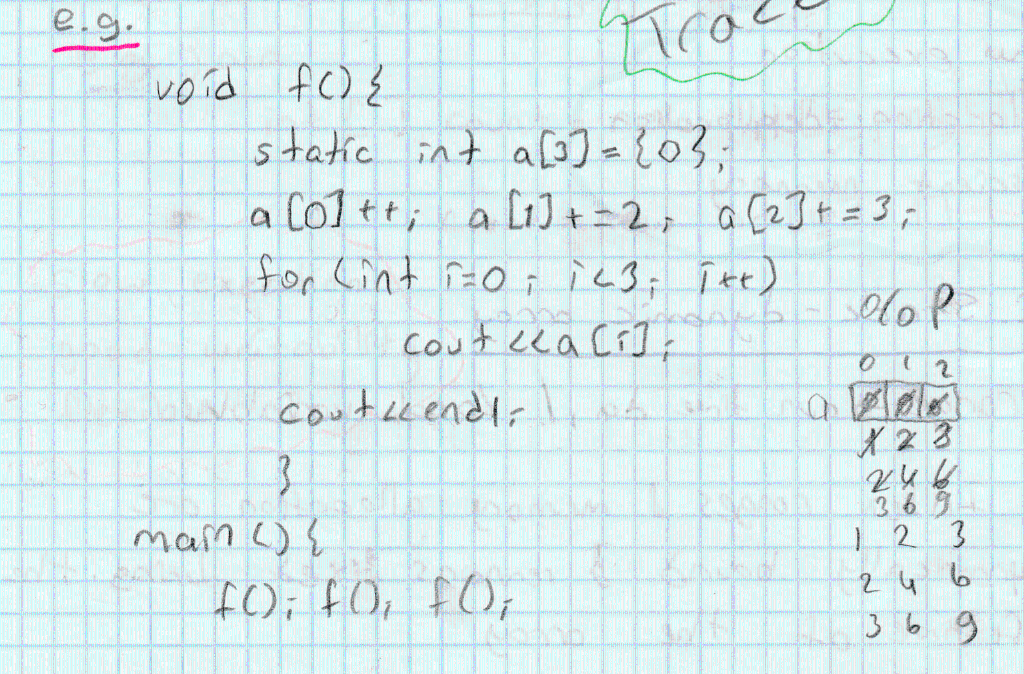 e.g.
Trace
void f() {
static int a[3] = {0};
a[0]++; a[1]+=2; a[2]+=3;
for (int i=0; i<3; i++)
cout<<a[i];
cout<<endl;
}
main() {
f(); f(); f();
o/o P
0 1 2
a 0 0 0
1 2 3
2 4 6
3 6 9
1 2 3
2 4 6
3 6 9